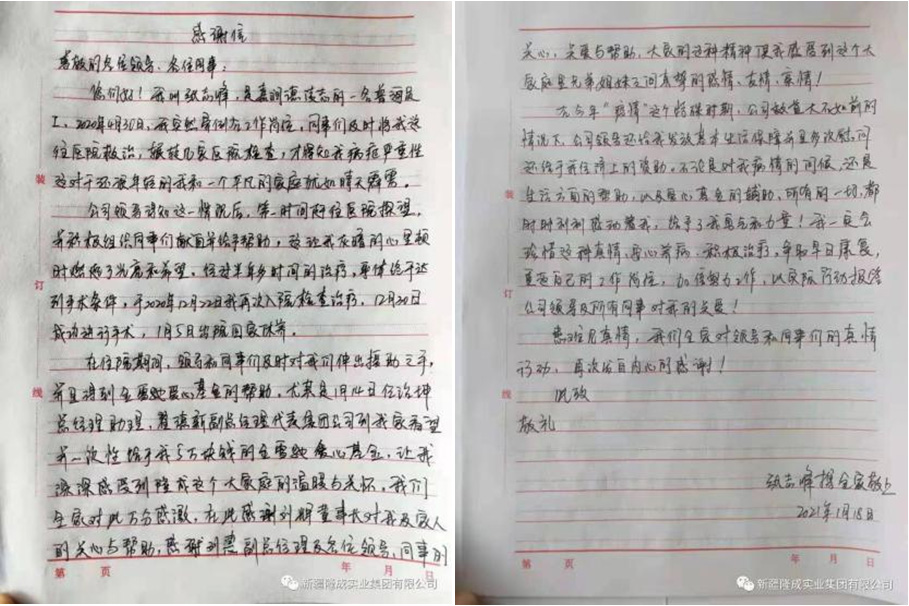 感谢信
尊敬的各位领导、各位同事:
您们好!我叫张志峰,是嘉润源陆志的一名普通员
工,2020年4月30日,我突然晕倒在工作岗位,同事们及时将我送
往医院救治,辗转几家医院检查,才得知我病症严重性
这对于还很年轻的我和一个平凡的家庭犹如晴天霹雳。
公司领导得知这一情况后,第一时间前往医院探望,
并积极组织同事们献血并给予帮助,这让我灰暗的心里顿
时燃起了光亮和希望,经过半年多时间的治疗,身体终于达
到手术条件,于2020年12月22日我再次入院检查治疗,12月30日
成功进行手术,1月5日出院回家休养。
在住院期间,领导和同事们及时对我们伸出援助之手,
并且得到金凤凰爱心基金的帮助。尤其是1月14日任
总经理助理,副总经理代表集团公司到我家看望
我一次性给予我5万块钱的金凤凰爱心基金,让我
深深感受到隆成这个大家庭的温暖与关怀。我们
全家对此万分感激,在此感谢刘辉董事长对我及家人
的关心与帮助,感谢副总经理及各位领导、同事的
第 页 年 月 日
装
订
线
新疆隆成实业集团有限公司
关心、关爱与帮助,大家的这种精神使我感受到这个大
家庭里兄弟姐妹之间真挚的感情、友情、亲情!
在今年“疫情”这个特殊时期,公司效益大不如前的
情况下,公司领导还给我发放基本生活保障并且多次慰问
还给予我经济上的资助,不论是对我病情的问候,还是
生活方面的帮助,以及爱心基金的辅助,所有的一切,都
时时刻刻感动着我,给予了我勇气和力量!我一定会
珍惜这种真情,安心养病、积极治疗,争取早日康复,
重返自己的工作岗位,加倍努力工作,以实际行动报答
公司领导及所有同事对我的关爱!
患难见真情,我们全家对领导和同事们的真情
行动,再次发自内心的感谢!
此致
敬礼
张志峰携全家敬上
2021年1月18日
第 页 年 月 日
装
订
线
新疆隆成实业集团有限公司